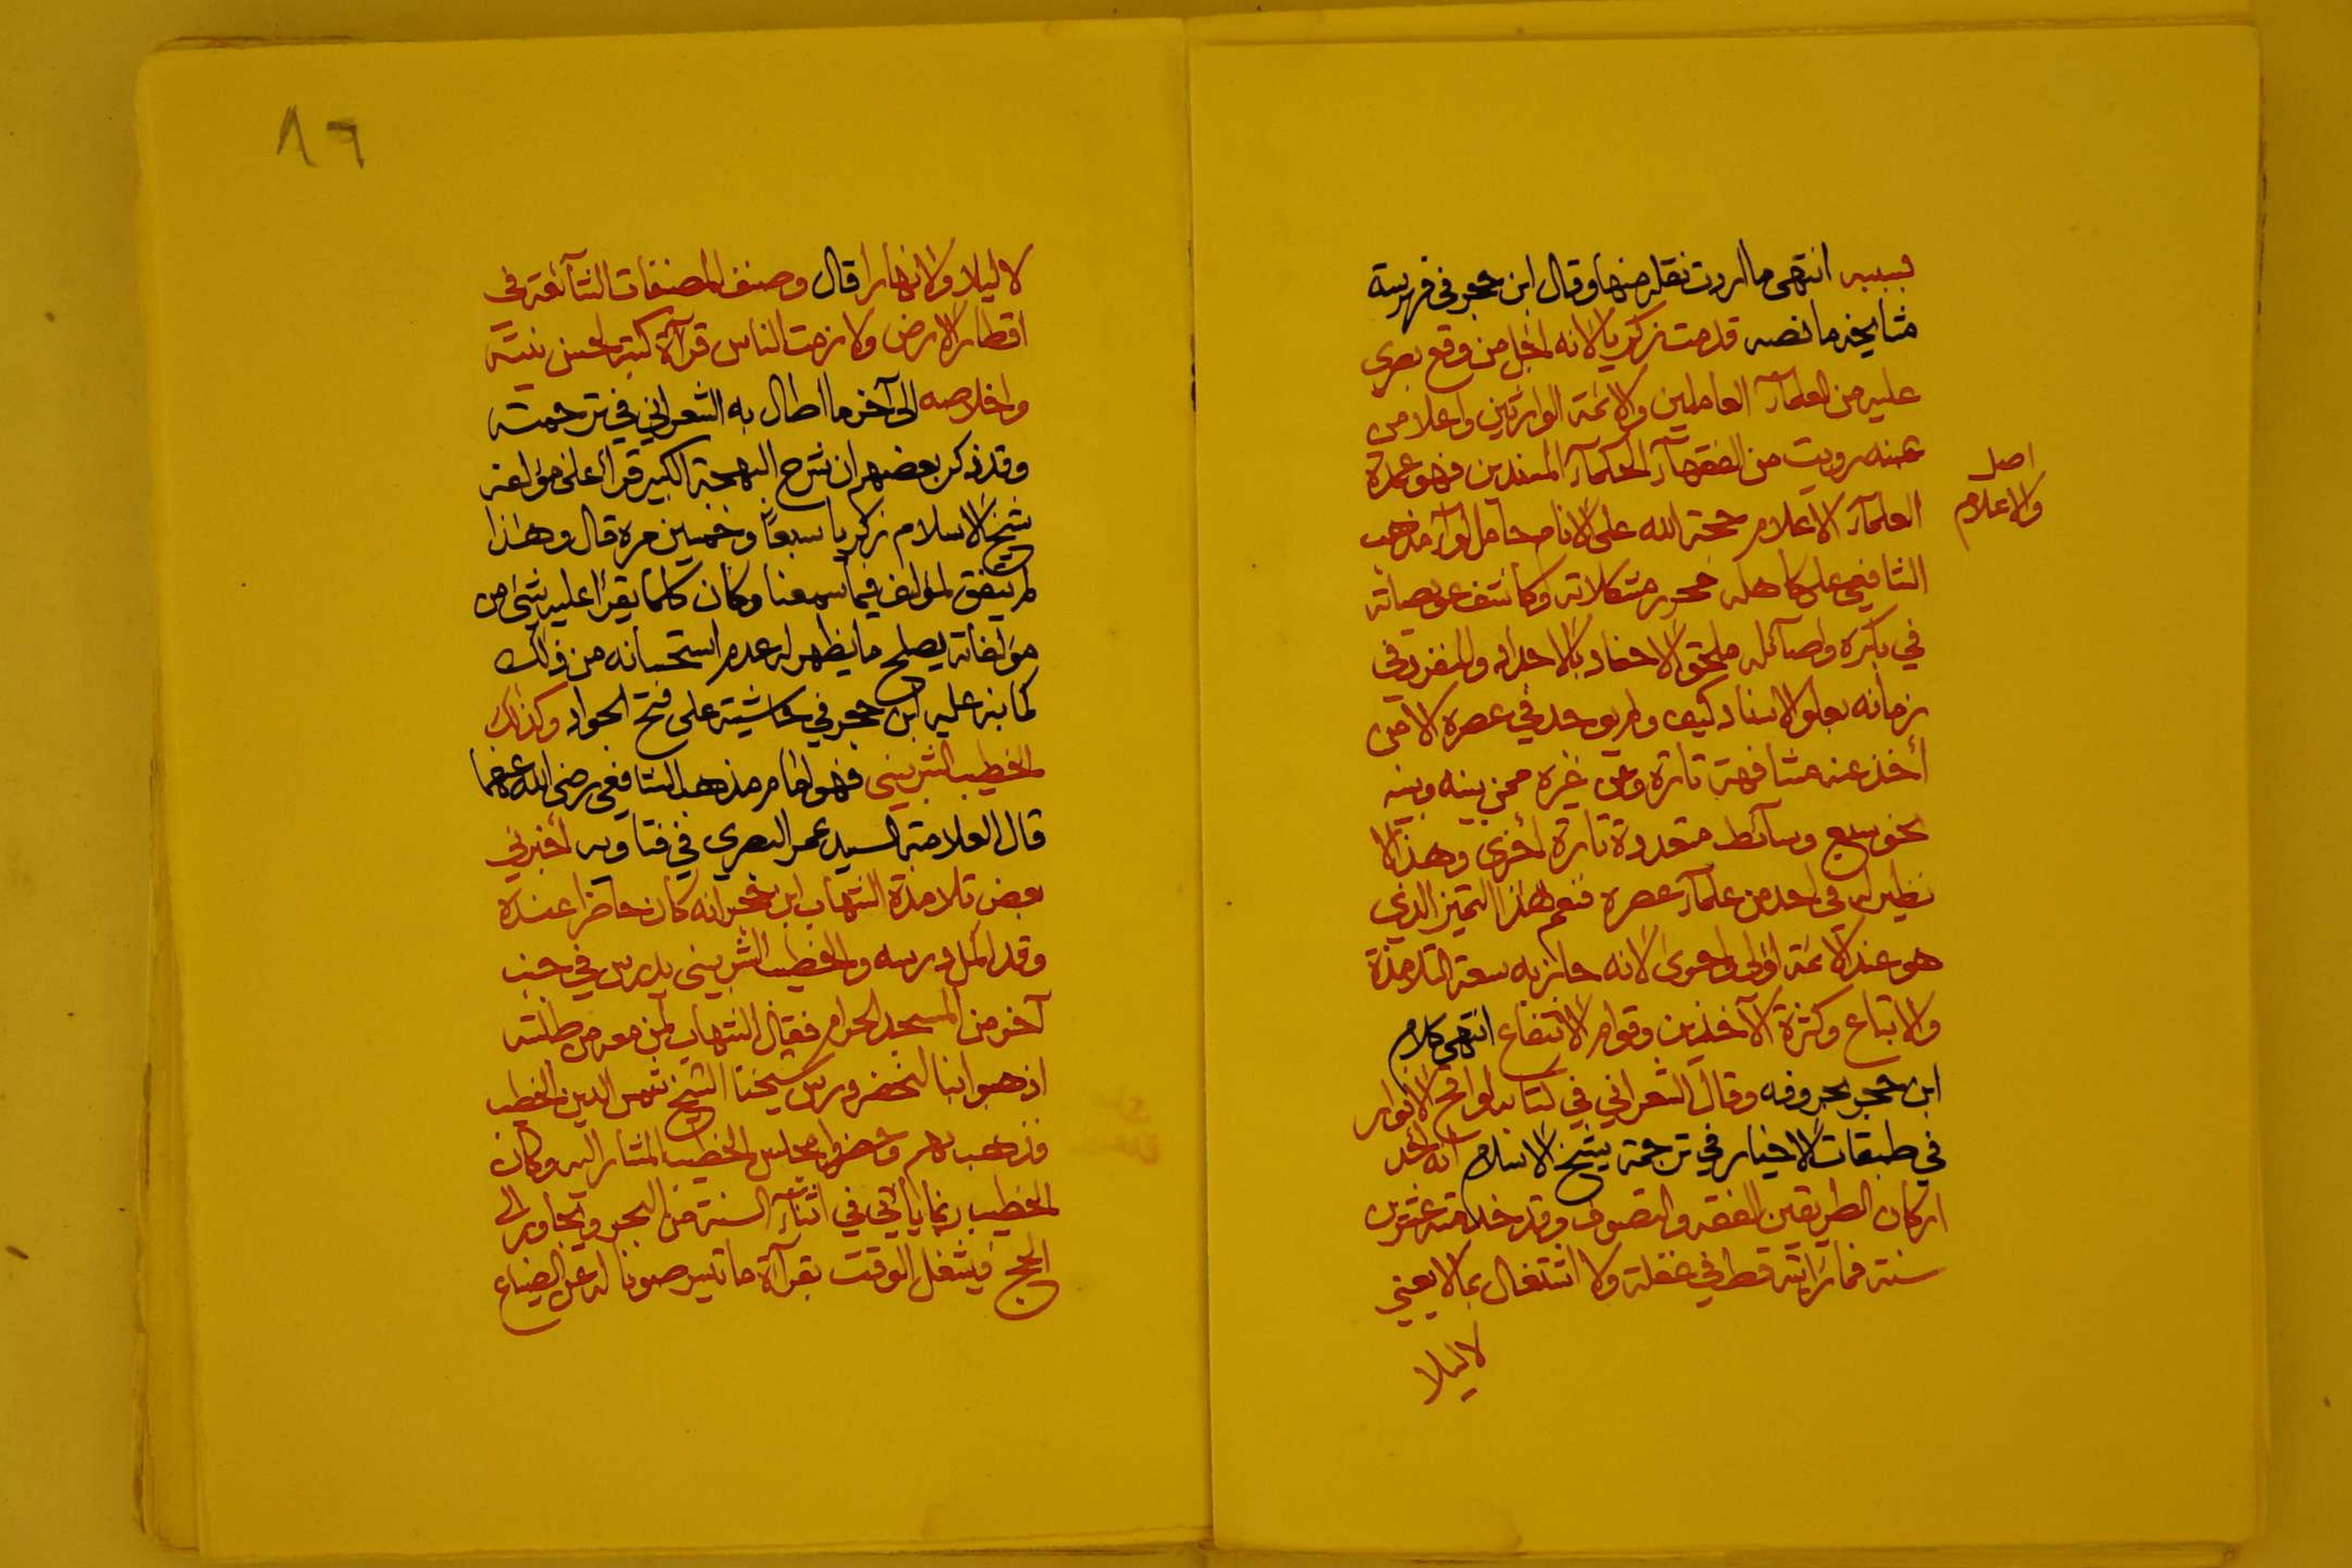 بسببه انتهى ما اردت نقله منها وقال ابن حجر في فهرسة
مشايخه ما نصه قدمت زكريا لانه اجل من وقع بصري
عليه من العلمآء العاملين والائمة الوارثين واعلا من
عنه رويت من الفقهآء الحكمآء المسندين فهو عمدة
العلمآء الاعلام حجة الله على الانام حامل لوآء مذهب
اصل
والاعلام
الشافعي على كاهله محرر مشكلاته وكاشف عويصاته
في بكره واصآئله ملحق الاحفاد بالاجداد والمنفرد في
زمانه بعلو الاسناد كيف ولم يوجد في عصره الا من
أخذ عنه مشافهة تارة وعن غيره ممن بينه وبينه
نحو سبع وسآئط متعددة تارة أخرى وهذا لا
نظير له في احد من علمآء عصره فنعم هذا التميز الذي
هو عند الائمة اولى واحرى لانه حاز به سعة التلامذة
والاتباع وكثرة الآخذين وقوام الانتفاع انتهى كلام
ابن حجر بحروفه وقال الشعراني في كتابه لواقح الانوار
في طبقات الاخيار في ترجمة شيخ الاسلام انه أحد
اركان الطريقين الفقه والتصوف وقد خدمته عشرين
سنة فما رايته قط في غفلة ولا اشتغال بما لا يعني
لا ليلا
٨٦
لا ليلا ولا نهارا قال وصنف المصنفات الشآئعة في
اقطار الارض ولازمت الناس قرآة كتبه لحسن نيته
واخلاصه الى آخر ما اطال به الشعراني في ترجمته
وقد ذكر بعضهم ان شرح البهجة الكبير قرأ على مؤلفه
شيخ الاسلام زكريا سبعاً وخمسين مرة قال وهذا
لم يتفق لمؤلف فيما سمعنا وكان كلما يقرا عليه شئ من
مؤلفاته يصلح ما يظهر له عدم استحسانه من ذلك
كما نبه عليه ابن حجر في حاشيته على فتح الجواد وكذلك
الخطيب الشربيني فهو امام مذهب الشافعي رضى الله عنهما
قال العلامة السيد عمر البصري في فتاويه أخبرني
بعض تلامذة الشهاب ابن حجر انه كان حاضرا عنده
وقد اكمل درسه والخطيب الشربيني يدرس في جنب
آخر من المسجد الحرام فقال الشهاب لمن معه من طلبته
اذهبوا بنا لنحضر درس شيخنا الشيخ شمس الدين الخطيب
فذهب بهم وحضروا مجلس الخطيب المشار اليه وكان
الخطيب ربما يأتي في اثنآء السنة من البحر ويجاور الى
الحج فيشغل الوقت بقرآة ما تيسر صونا له عن الضياع